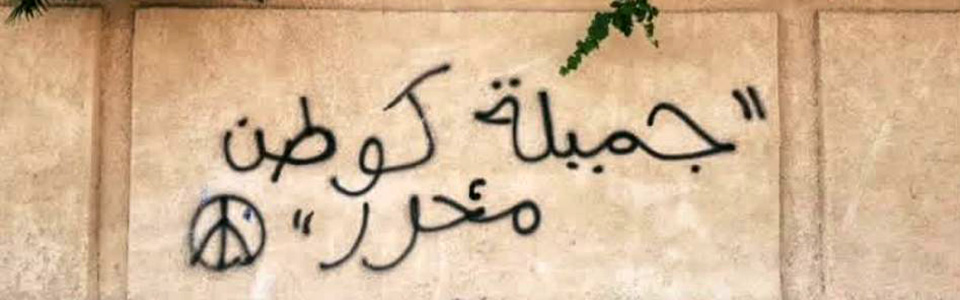 "جميلة كوطن
محرر"